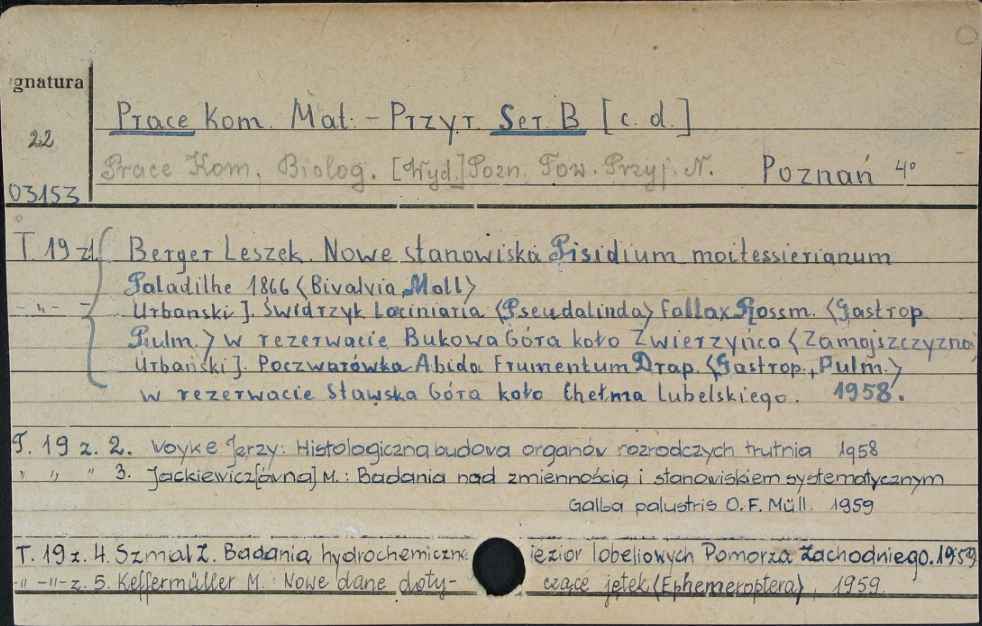 gnatura
22
03153
Prace Kom. Mat. - Przyr. Ser B [c. d.]
Prace Kom. Biolog. [Wyd.] Pozn. Tow. Przyj. N. Poznań 4°
T 19 z1. Berger Leszek. Nowe stanowiska Pisidium moitessierianum
Paladilhe 1866 <Bivalvia, Moll>
- „ - Urbanski J. Świdrzyk Laciniaria <Pseudalinda> Fallax Rossm. <Gastrop
Pulm.> w rezerwacie Bukowa Góra koło Zwierzyńca <Zamojszczyzna
Urbański J. Poczwarówka Abida Frumentum Drap. <Gastrop., Pulm.>
w rezerwacie Stawska Góra koło Chełma Lubelskiego. 1958.
T. 19 z. 2. Woyke Jerzy: Histologiczna budowa organów rozrodczych trutnia 1958
" " " 3. Jackiewicz[ówna] M.: Badania nad zmiennością i stanowiskiem systematycznym
Galba palustris O. F. Müll. 1959
T. 19 z. 4. Szmal Z. Badania hydrochemiczne jezior lobeliowych Pomorza Zachodniego. 1959
-„- -„- z. 5. Keffermüller M.: Nowe dane doty- czące jętek <Ephemeroptera>, 1959.